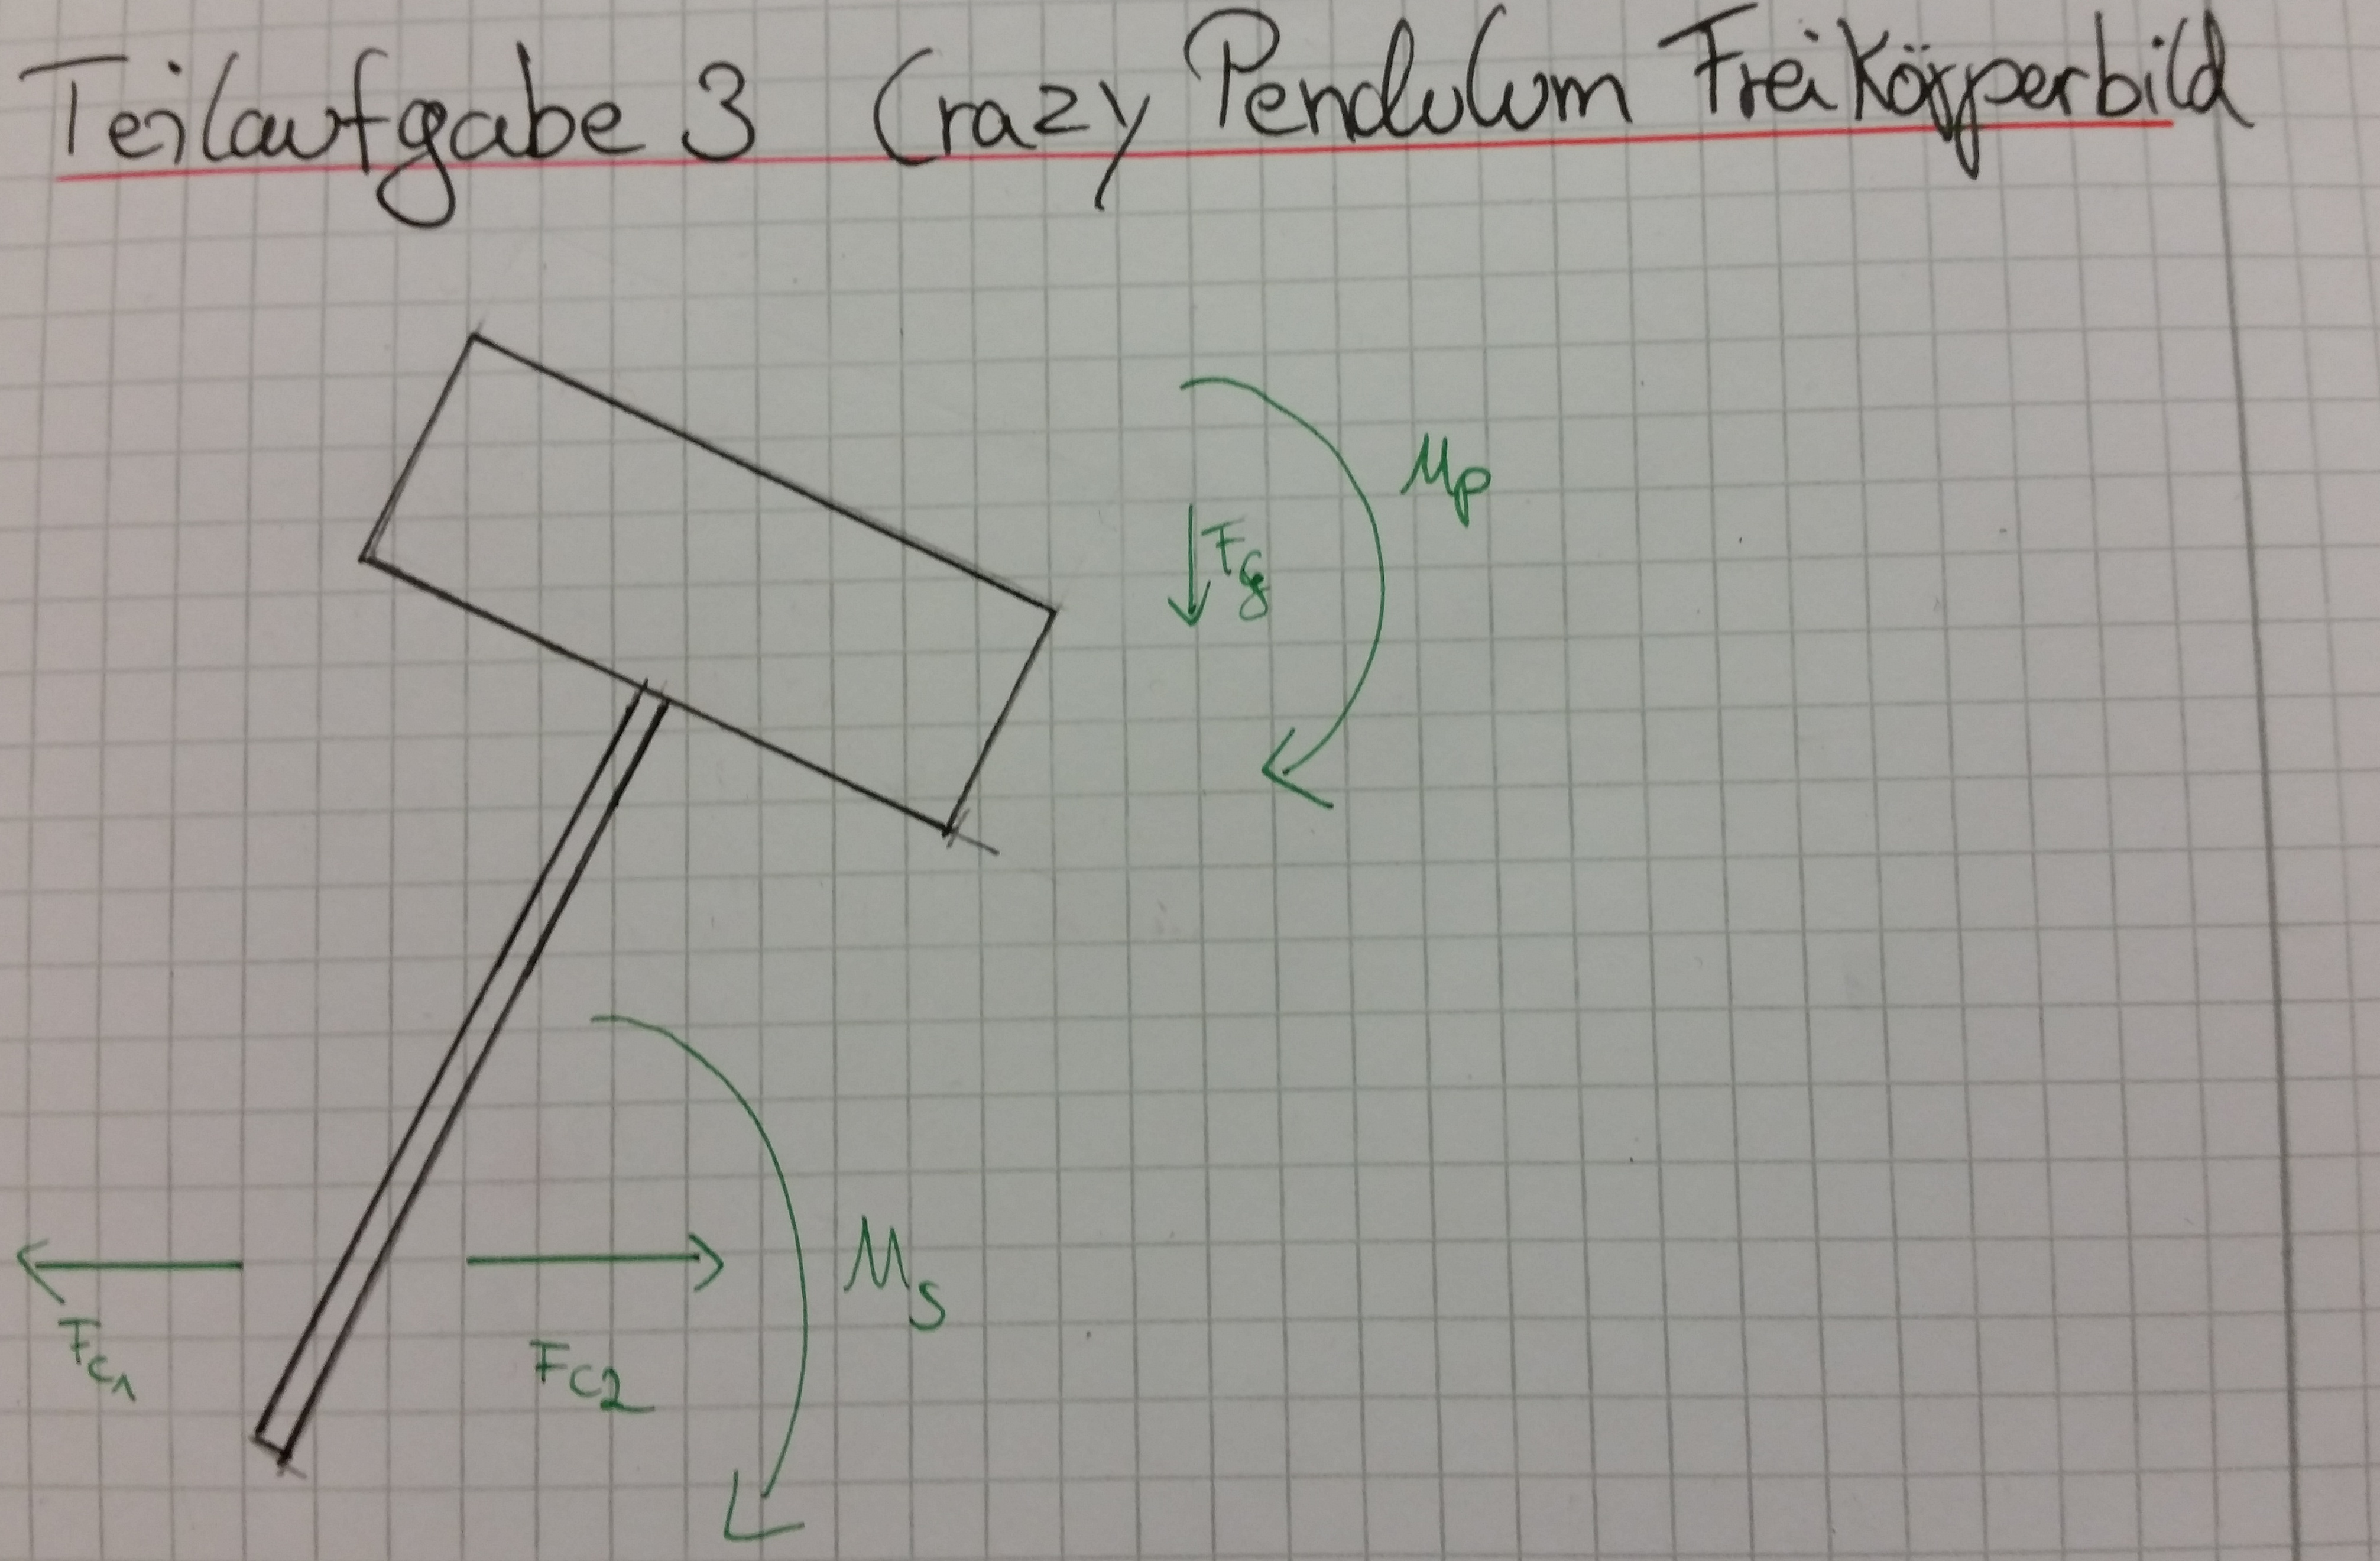 Teilaufgabe 3 Crazy Pendulum Freikörperbild
Mp
Fg
Ms
Fc1
Fc2